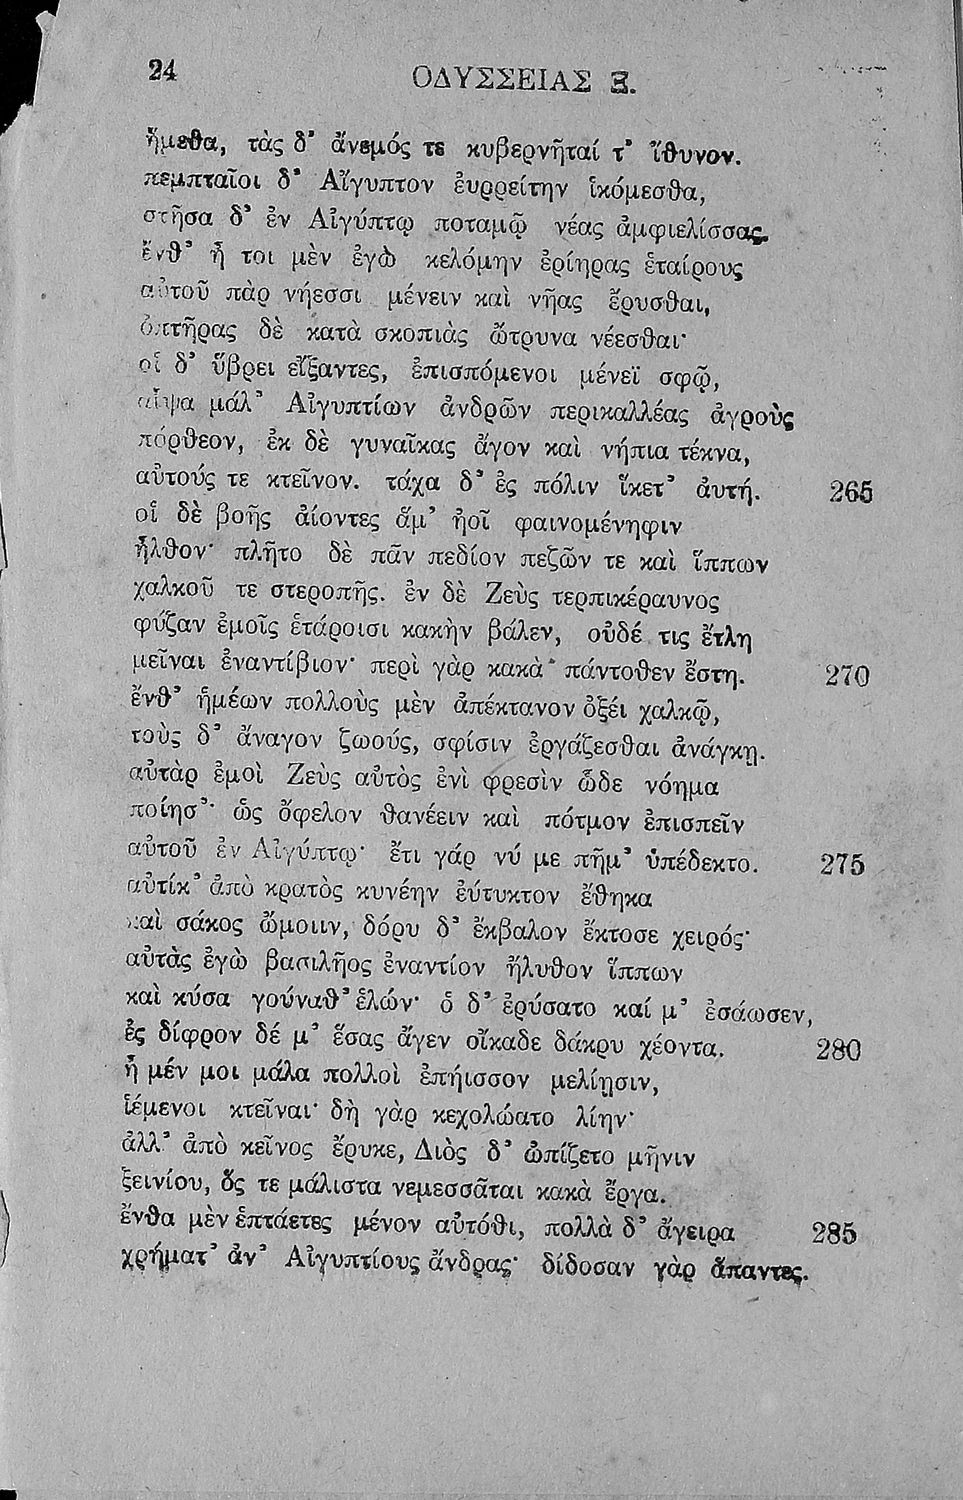 24
ΟΔΥΣΣΕΙΑΣ Ξ.
ἥμεθα, τὰς δ' ἄνεμός τε κυβερνῆταί τ' ἴθυνον.
πεμπταῖοι δ' Αἴγυπτον ἐυρρείτην ἱκόμεσθα,
στῆσα δ' ἐν Αἰγύπτῳ ποταμῷ νέας ἀμφιελίσσας.
ἔνθ' ἦ τοι μὲν ἐγὼ κελόμην ἐρίηρας ἑταίρους
αὐτοῦ πὰρ νήεσσι μένειν καὶ νῆας ἔρυσθαι,
ὀπτῆρας δὲ κατὰ σκοπιὰς ὤτρυνα νέεσθαι·
οἱ δ' ὕβρει εἴξαντες, ἐπισπόμενοι μένεϊ σφῷ,
αἶψα μάλ' Αἰγυπτίων ἀνδρῶν περικαλλέας ἀγροὺς
πόρθεον, ἐκ δὲ γυναῖκας ἄγον καὶ νήπια τέκνα,
αὐτούς τε κτεῖνον. τάχα δ' ἐς πόλιν ἵκετ' ἀυτή. 265
οἱ δὲ βοῆς ἀίοντες ἅμ' ἠοῖ φαινομένηφιν
ἦλθον· πλῆτο δὲ πᾶν πεδίον πεζῶν τε καὶ ἵππων
χαλκοῦ τε στεροπῆς. ἐν δὲ Ζεὺς τερπικέραυνος
φύζαν ἐμοῖς ἑτάροισι κακὴν βάλεν, οὐδέ τις ἔτλη
μεῖναι ἐναντίβιον· περὶ γὰρ κακὰ πάντοθεν ἔστη. 270
ἔνθ' ἡμέων πολλοὺς μὲν ἀπέκτανον ὀξέι χαλκῷ,
τοὺς δ' ἄναγον ζωούς, σφίσιν ἐργάζεσθαι ἀνάγκῃ.
αὐτὰρ ἐμοὶ Ζεὺς αὐτὸς ἐνὶ φρεσὶν ὧδε νόημα
ποίησ'· ὡς ὄφελον θανέειν καὶ πότμον ἐπισπεῖν
αὐτοῦ ἐν Αἰγύπτῳ· ἔτι γάρ νύ με πῆμ' ὑπέδεκτο. 275
αὐτίκ' ἀπὸ κρατὸς κυνέην ἐύτυκτον ἔθηκα
καὶ σάκος ὤμοιιν, δόρυ δ' ἔκβαλον ἔκτοσε χειρός·
αὐτὰς ἐγὼ βασιλῆος ἐναντίον ἤλυθον ἵππων
καὶ κύσα γούναθ' ἑλών· ὁ δ' ἐρύσατο καί μ' ἐσάωσεν,
ἐς δίφρον δέ μ' ἕσας ἄγεν οἴκαδε δάκρυ χέοντα. 280
ἦ μέν μοι μάλα πολλοὶ ἐπήισσον μελίῃσιν,
ἱέμενοι κτεῖναι· δὴ γὰρ κεχολώατο λίην·
ἀλλ' ἀπὸ κεῖνος ἔρυκε, Διὸς δ' ὠπίζετο μῆνιν
ξεινίου, ὅς τε μάλιστα νεμεσσᾶται κακὰ ἔργα.
ἔνθα μὲν ἑπτάετες μένον αὐτόθι, πολλὰ δ' ἄγειρα 285
χρήματ' ἀν' Αἰγυπτίους ἄνδρας· δίδοσαν γὰρ ἅπαντες.